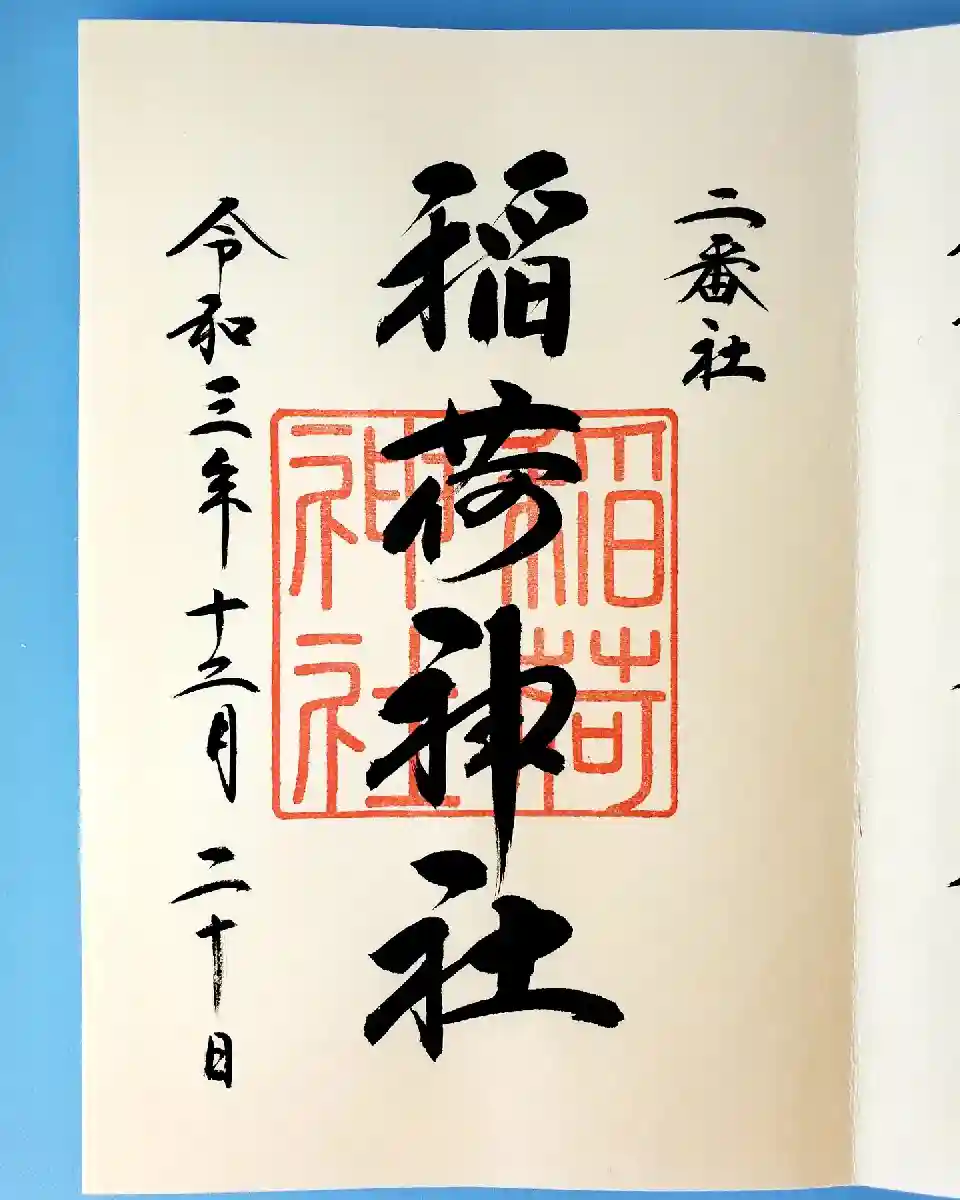 二番社
稲荷神社
稲荷神社
令和三年十二月二十日